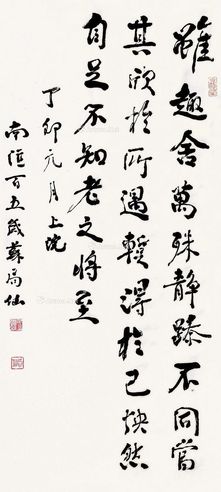 雖趣舍萬殊静躁不同當
其欣於所遇暫得於己怏然
自足不知老之將至
丁卯元月上浣
南滙百五歲蘇局仙